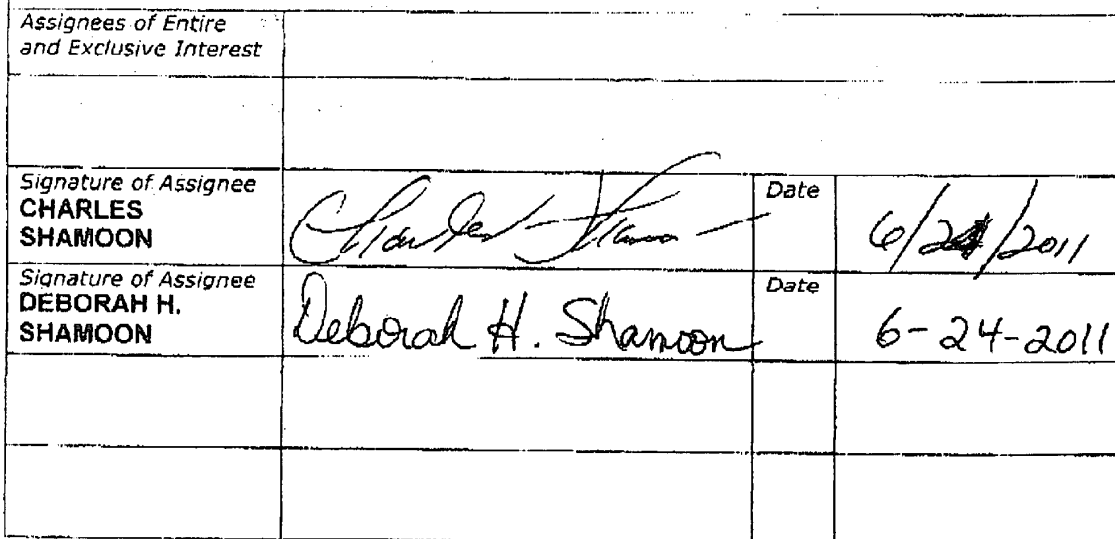 Assignees of Entire
and Exclusive Interest
Signature of Assignee
CHARLES
SHAMOON
Charles Shamoon
Date
6/24/2011
Signature of Assignee
DEBORAH H.
SHAMOON
Deborah H. Shamoon
Date
6-24-2011